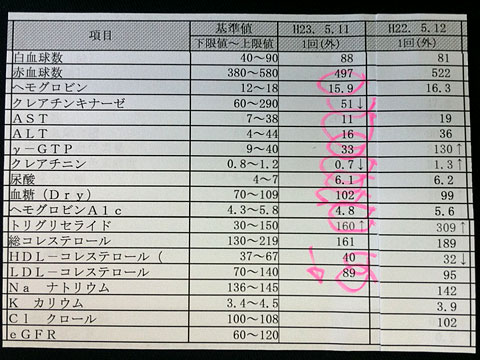 項目 基準値 H23. 5.11 H22. 5.12
下限値～上限値 1回(外) 1回(外)
白血球数 40～90 88 81
赤血球数 380～580 497 522
ヘモグロビン 12～18 15.9 16.3
クレアチンキナーゼ 60～290 51↓
AST 7～38 11 19
ALT 4～44 16 36
γ－GTP 9～40 33 130↑
クレアチニン 0.8～1.2 0.7↓ 1.3↑
尿酸 4～7 6.1 6.2
血糖（Dry） 70～109 102 99
ヘモグロビンA1c 4.3～5.8 4.8 5.6
トリグリセライド 30～150 160↑ 309↑
総コレステロール 130～219 161 189
HDL－コレステロール（ 37～67 40 32↓
LDL－コレステロール 70～140 89 95
Na ナトリウム 136～145 142
K カリウム 3.4～4.5 3.9
Cl クロール 100～108 102
eGFR 60～120